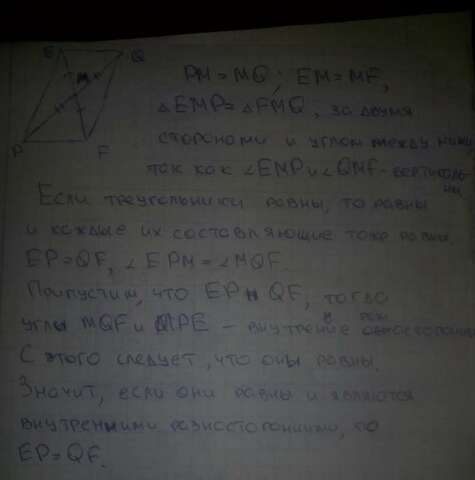 E Q
M
P F
PM = MQ; EM = MF,
△EMP = △FMQ, за двумя
сторонами и углом между ними,
так как ∠EMP и ∠QMF - вертикаль-
ны.
Если треугольники равны, то равны
и каждые их составляющие тоже равны.
EP = QF, ∠EPM = ∠MQF.
Припустим, что EP и QF, тогда
углы MQF и MPE - внутрение односторонн
С этого следует, что оны равны.
Значит, если они равны и являются
внутренними разносторонними, то
EP = QF.